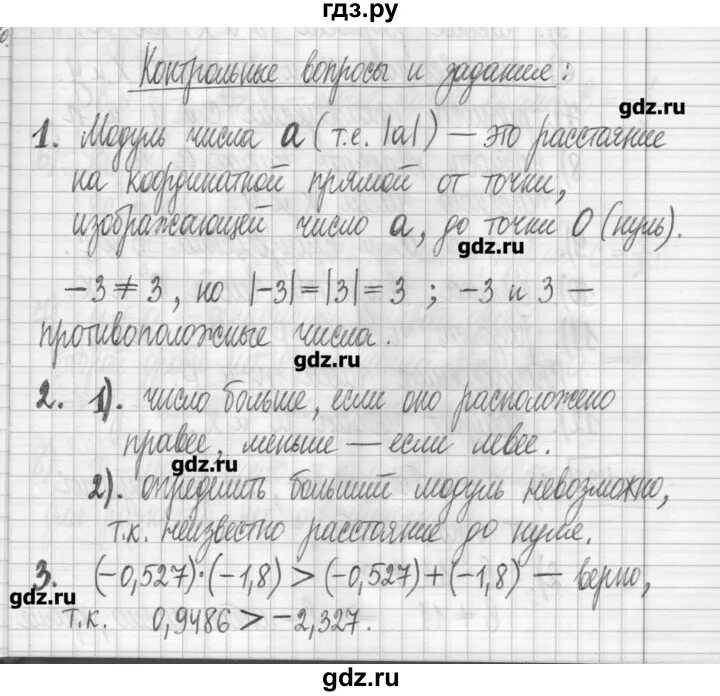 гдз.ру
Контрольные вопросы и задание:
gdz.ru
1. Модуль числа a (т.е. |a|) — это расстояние
на координатной прямой от точки,
изображающей число a, до точки O (нуль).
gdz.ru
-3 ≠ 3, но |-3| = |3| = 3 ; -3 и 3 —
противоположные числа.
gdz.ru
2. 1). число больше, если оно расположено
правее, меньше — если левее.
gdz.ru
2). определить больший модуль невозможно,
т.к. неизвестно расстояние до нуля.
3. (-0,527)·(-1,8) > (-0,527)+(-1,8) — верно,
gdz.ru
т.к. 0,9486 > -2,327.
gdz.ru